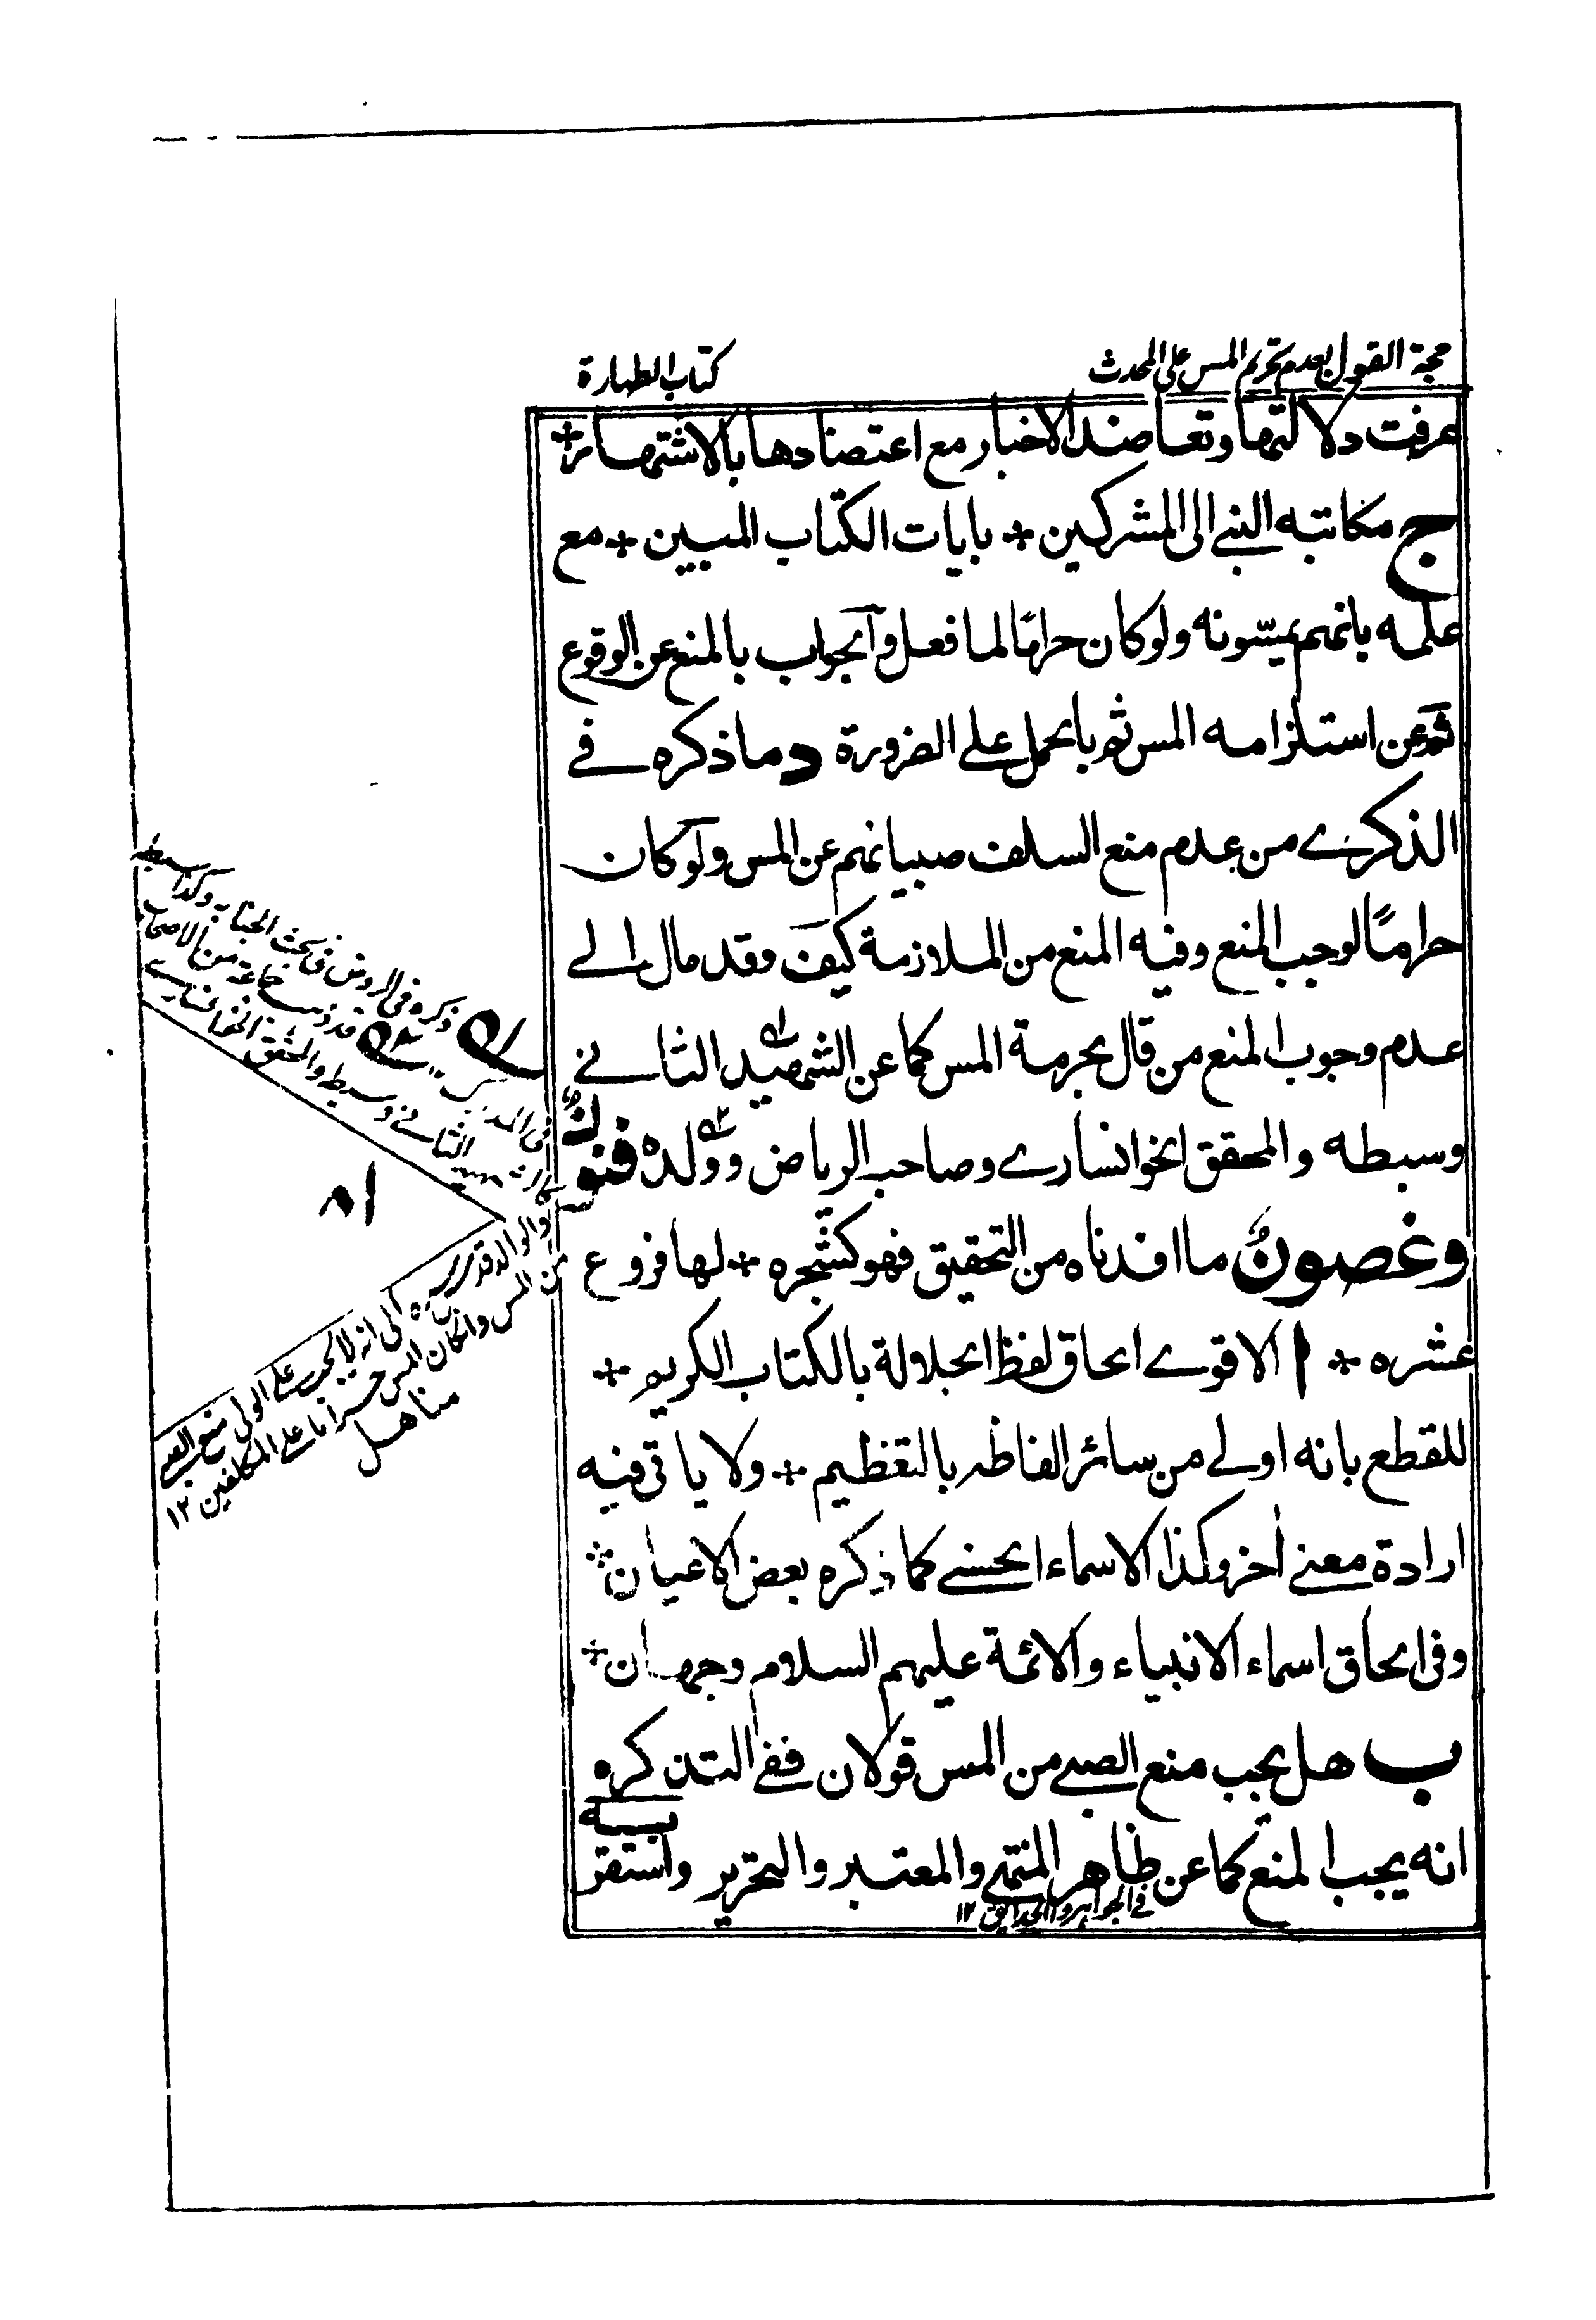 حجة القول بعدم تحريم المس على المحدث
كتاب الطهارة
عرفت دلالتها وتعاضد الاخبار مع اعتضادها بالاشتهار
ج مكاتبه النبي الى المشركين * بايات الكتاب المبين * مع
علمه بانهم يمسّونه ولو كان حرامًا لما فعل والجواب بالمنع عن الوقوع
ثم عن استلزامه المس ثم بالحمل على الضرورة د ما ذكره في
الذكرى من عدم منع السلف صبيانهم عن المس ولو كان
حرامًا لوجب المنع وفيه المنع من الملازمة كيف وقد مال الى
عدم وجوب المنع من قال بحرمة المس كما عن الشهيد الثاني
وسبطه والمحقق الخوانساري وصاحب الرياض وولده فنون
وغصون ما افدناه من التحقيق فهو كشجره * لها فروع
عشره * ا الاقوى الحاق لفظ الجلالة بالكتاب الكريم *
للقطع بانه اولى من سائر الفاظه بالتعظيم * ولا ياتى فيه
ارادة معنى اخر وكذا الاسماء الحسنى كما ذكره بعض الاعيان
وفى الحاق اسماء الانبياء والائمة عليهم السلام وجهان *
ب هل يجب منع الصبي من المس قولان ففي التذكره
انه يجب المنع كما عن ظاهر المنتهى والمعتبر والتحرير واستقربه
في الجواهر والحدائق ١٢
ذكره في الروض في بحث الجنابه وكذا سبطه
جماعة من الاصحاب
الثاني وسبطه والمحقق الخوانساري
٨١
والوالد قدس سره الى انه لا يجب على الولي منع الصبي
من المس وان كان المس حراما على المكلفين ١٢
مناهل